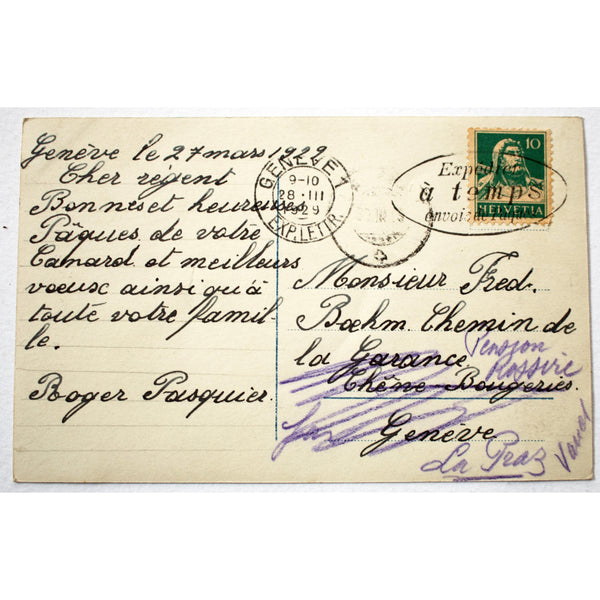 Genève le 27 mars 1929
Cher régent
Bonnes et heureuses
Pâques de votre
Canard et meilleurs
voeux ainsi qu'à
toute votre famil-
le.
Roger Pasquier.
GENÈVE 1
9-10
28.III
1929
EXP. LETTR.
Expédiez
à temps
envois de
10
HELVETIA
Monsieur Fred.
Bœhm. Chemin de
la Garance
Chêne-Bougeries.
Genève
Pension
La Praz